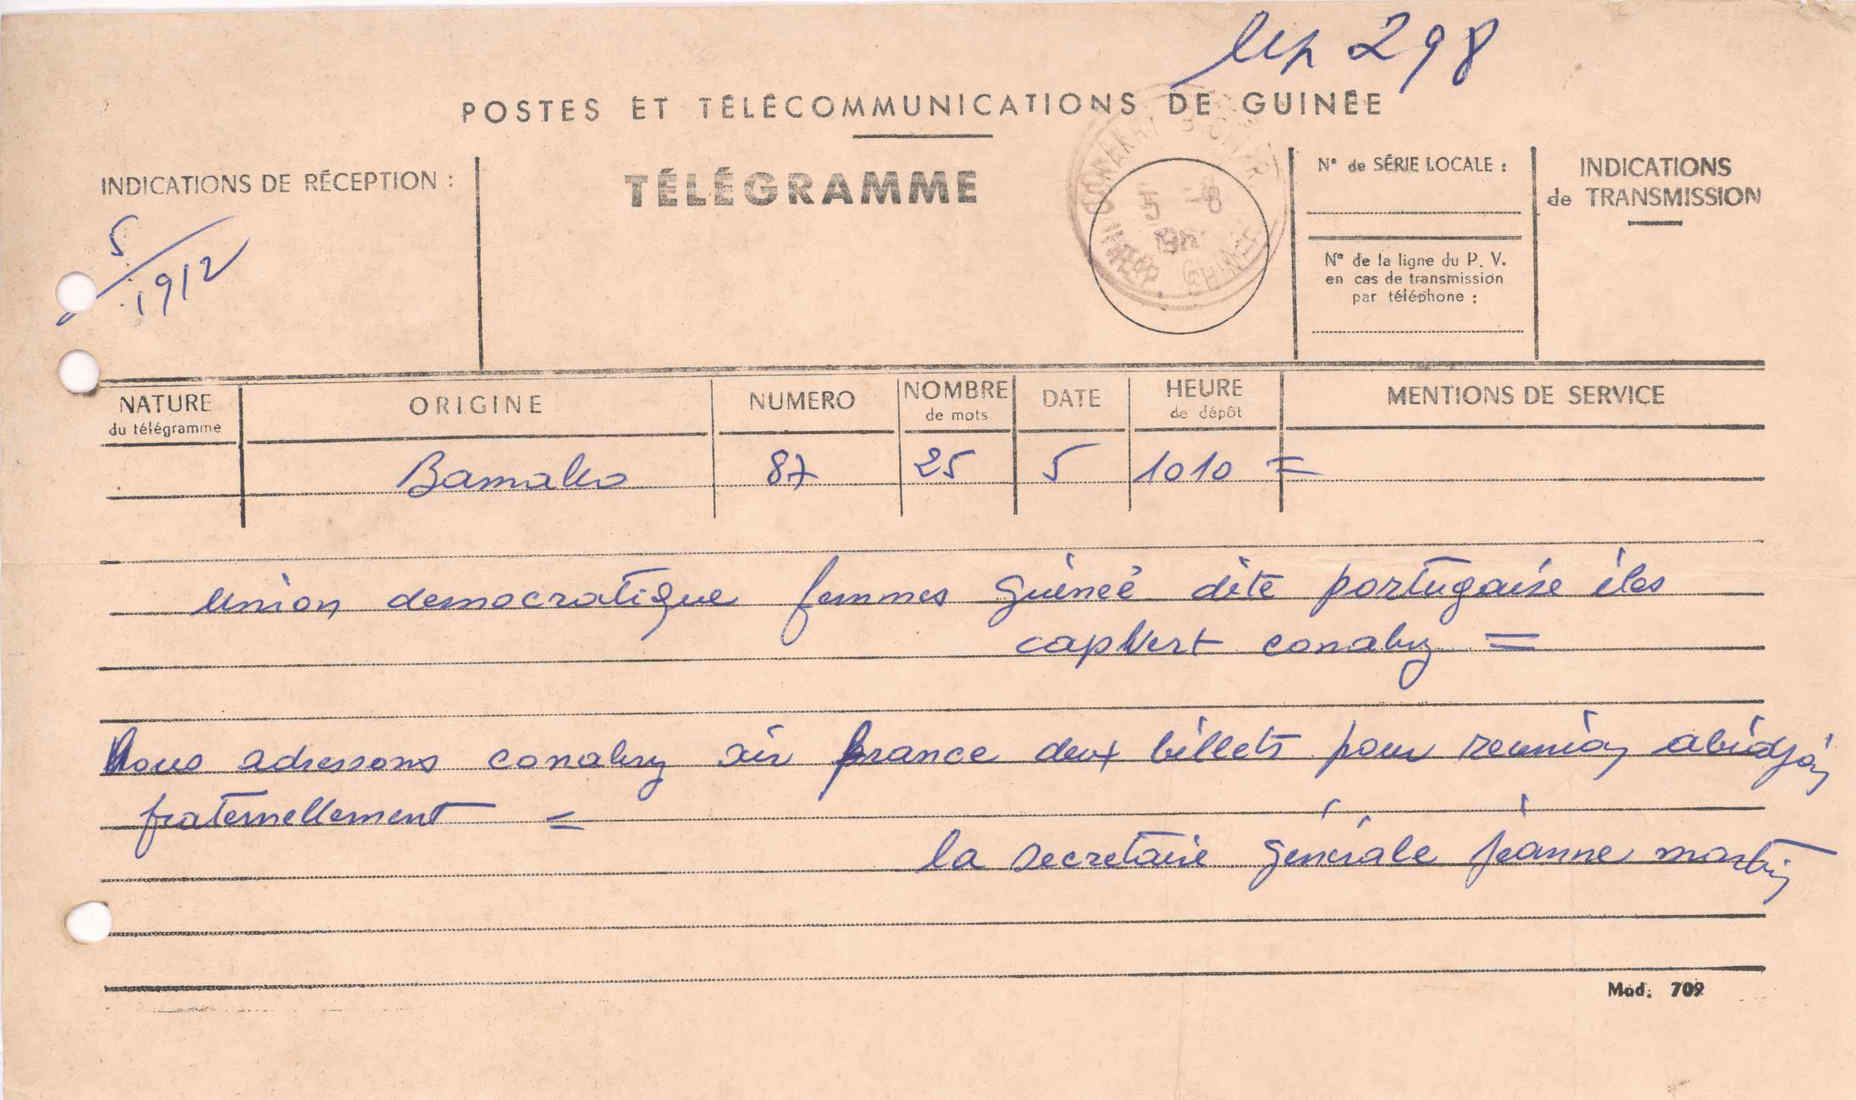 298
POSTES ET TÉLÉCOMMUNICATIONS DE GUINÉE
INDICATIONS DE RÉCEPTION :
5
1912
TÉLÉGRAMME
CONAKRY
5 -8
GUINÉE
N° de SÉRIE LOCALE :
N° de la ligne du P. V.
en cas de transmission
par téléphone :
INDICATIONS
de TRANSMISSION
NATURE
du télégramme
ORIGINE
NUMERO
NOMBRE
de mots
DATE
HEURE
de dépôt
MENTIONS DE SERVICE
Bamako 87 25 5 1010 =
union democratique femmes guineé dite portugaise iles
capvert conakry =
Nous adressons conakry air france deux billets pour reunion abidjan
fraternellement =
la secretaire générale jeanne martin
Mod. 709